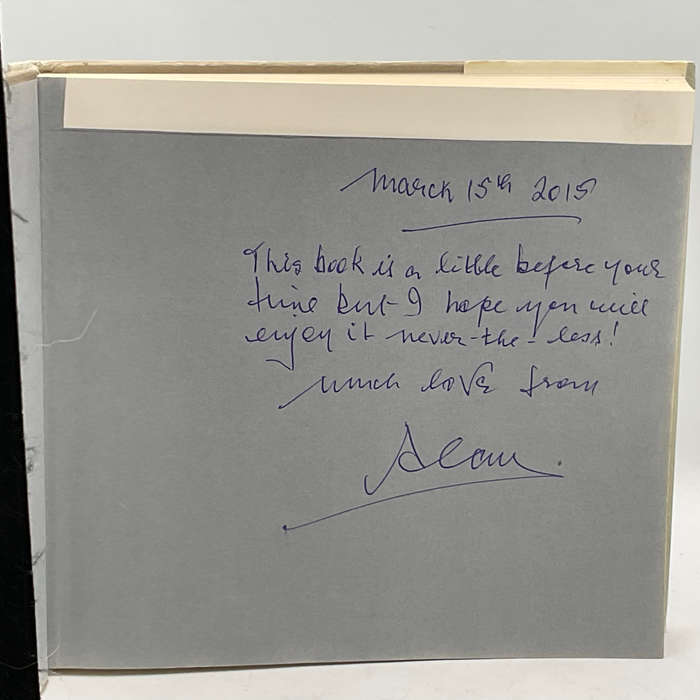 March 15th 2015
This book is a little before your
time but I hope you will
enjoy it never-the-less!
much love from
Alan.